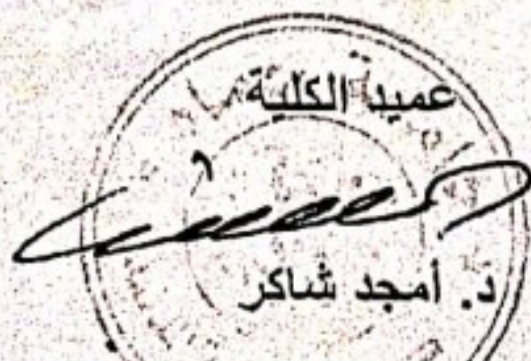 عميد الكلية
د. أمجد شاكر